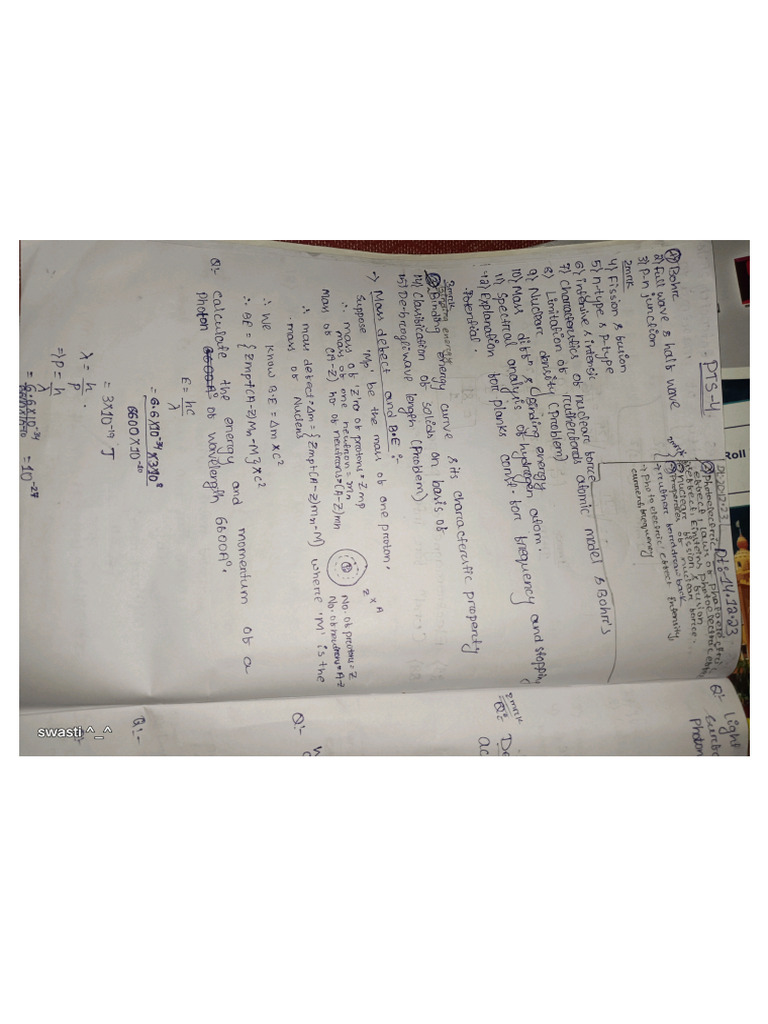 PTS-4.
Dt:-14.12.23
1) Bohr
2) full wave & half wave
3) P-n junction
2mrk
4) Fission & fusion
5) n-type & p-type
6) intrinsic & intensic
7) Characteristics of nuclear force
8) Limitation of rutherfords atomic model & Bohr's
9) Nuclear density (Problem)
10) Mass diftⁿ & bending energy.
11) Spectral analysis of hydrogen atom.
12) Explanation for planks const. for frequency and stopping
Potential.
Photoelectric
effect & laws of photoelectric
effect, Einstein's photoelectric eqn
nuclear fission & fusion
Properties of nuclear force.
→ ruther ford drawback
→ Photo electric effect intensity,
current frequency
3mrk
Binding energy curve & its characteristic property
14) Classification of solids on basis of
15) De-broglie wave length (Problem)
→ Mass defect and B.E :-
Suppose 'Mp' be the mass of one proton.
∴ mass of 'Z' no of protons = Zmp
mass of one neutron = mn
mass of (A-Z) no of neutrons = (A-Z)mn
∴ mass defect = Δm = {Zmp+(A-Z)mn-M} where 'M' is the
mass of Nucleus
Z X A
No. of proton = Z
No. of neutron = A-Z
∴ We know B.E = Δm×c²
∴ BE = {Zmp+(A-Z)Mn-M}×c²
Q:- calculate the energy and momentum of a
photon of wavelength 6600A°.
E = hc/λ
= 6.6×10⁻³⁴×3×10⁸ / 6600×10⁻¹⁰
= 3×10⁻¹⁹ J
λ = h/p.
⇒ P = h/λ
= 6.6×10⁻³⁴ = 10⁻²⁷
Q:- Light
Photon
2mrk
Q:-
Q:-
Roll
swasti ^_^